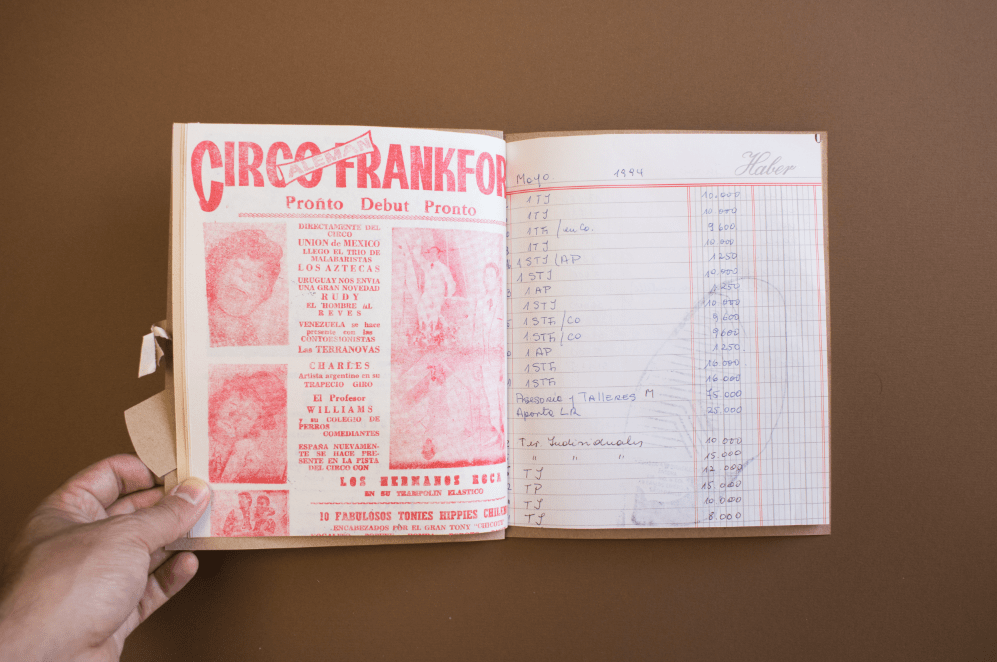 CIRCO FRANKFOR
ALEMAN
Pronto Debut Pronto
DIRECTAMENTE DEL
CIRCO
UNION de MEXICO
LLEGO EL TRIO DE
MALABARISTAS
LOS AZTECAS
URUGUAY NOS ENVIA
UNA GRAN NOVEDAD
RUDY
EL HOMBRE AL
REVES
VENEZUELA se hace
presente con los
CONTORSIONISTAS
Las TERRANOVAS
CHARLES
Artista argentino en su
TRAPECIO GIRO
El Profesor
WILLIAMS
y su COLEGIO DE
PERROS
COMEDIANTES
ESPAÑA NUEVAMEN-
TE SE HACE PRE-
SENTE EN LA PISTA
DEL CIRCO CON
LOS HERMANOS ROCA
EN SU TRAMPOLIN ELASTICO
10 FABULOSOS TONIES HIPPIES CHILEN
ENCABEZADOS POR EL GRAN TONY
Haber
Mayo 1994
1 TJ 10.000
1 TJ 10.000
1 Th / en Co. 9.600
1 TJ 10.000
1 STJ / AP 1250
1 STJ 10.000
1 AP 1250
1 STJ 10.000
1 STh / Co 9.600
1 STh / CO 9600
1 AP 1250
1 STh 10.000
1 STh 10.000
Asesoria y TALLERES M 75.000
Aporte LR 25.000
Ter. Individuales 10.000
" " " 15.000
TJ 12.000
TP 15.000
TJ 10.000
TJ 8.000